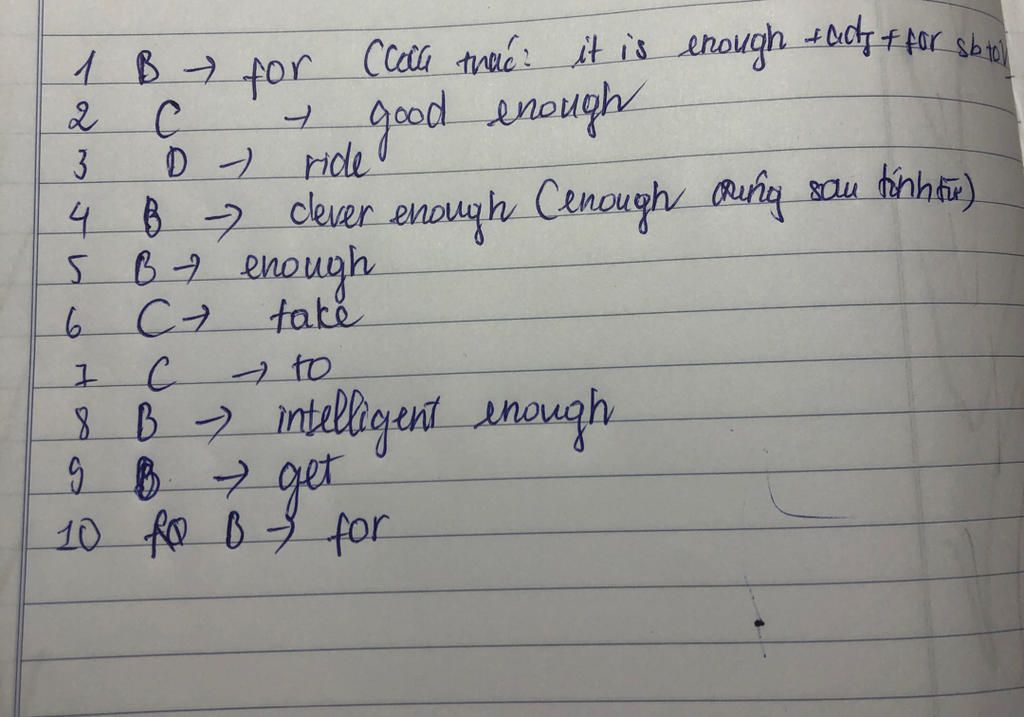 1 B → for (Cấu trúc: it is enough + adj + for sb to V
2 C → good enough
3 D → ride
4 B → clever enough (enough đứng sau tính từ)
5 B → enough
6 C → take
7 C → to
8 B → intelligent enough
9 B → get
10 B → for